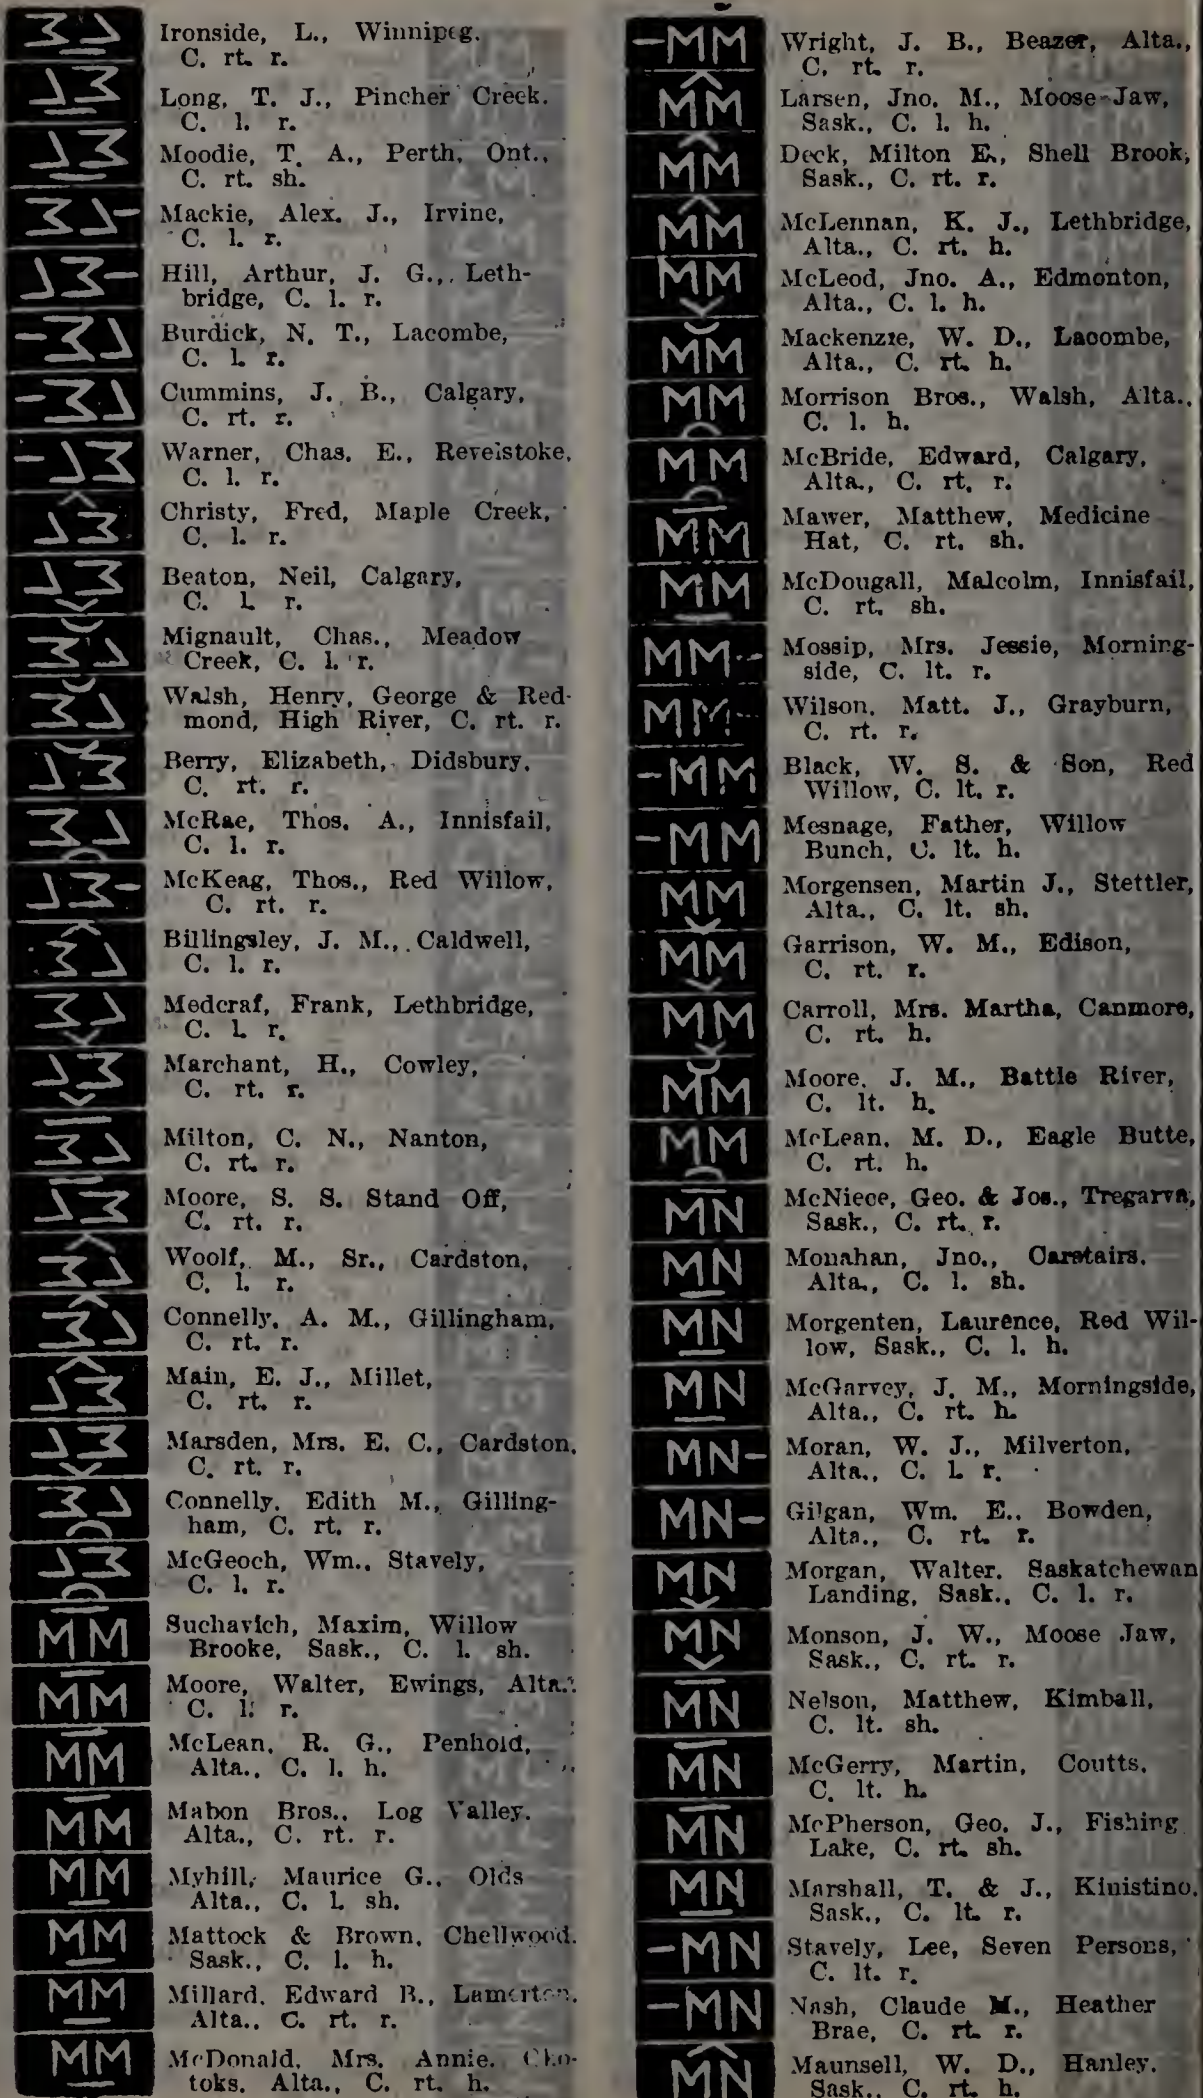 Ironside, L., Winnipeg.
C. rt. r.
Long, T. J., Pincher Creek.
C. l. r.
Moodie, T. A., Perth, Ont.,
C. rt. sh.
Mackie, Alex. J., Irvine,
C. l. r.
Hill, Arthur, J. G., Leth-
bridge, C. l. r.
Burdick, N. T., Lacombe,
C. l. r.
Cummins, J. B., Calgary,
C. rt. r.
Warner, Chas. E., Revelstoke,
C. l. r.
Christy, Fred, Maple Creek,
C. l. r.
Beaton, Neil, Calgary,
C. l. r.
Mignault, Chas., Meadow
Creek, C. l. r.
Walsh, Henry, George & Red-
mond, High River, C. rt. r.
Berry, Elizabeth, Didsbury,
C. rt. r.
McRae, Thos. A., Innisfail,
C. l. r.
McKeag, Thos., Red Willow,
C. rt. r.
Billingsley, J. M., Caldwell,
C. l. r.
Medcraf, Frank, Lethbridge,
C. l. r.
Marchant, H., Cowley,
C. rt. r.
Milton, C. N., Nanton,
C. rt. r.
Moore, S. S. Stand Off,
C. rt. r.
Woolf, M., Sr., Cardston,
C. l. r.
Connelly, A. M., Gillingham,
C. rt. r.
Main, E. J., Millet,
C. rt. r.
Marsden, Mrs. E. C., Cardston,
C. rt. r.
Connelly, Edith M., Gilling-
ham, C. rt. r.
McGeoch, Wm., Stavely,
C. l. r.
MM Suchavich, Maxim, Willow
Brooke, Sask., C. l. sh.
MM Moore, Walter, Ewings, Alta.
C. l. r.
MM McLean, R. G., Penhold,
Alta., C. l. h.
MM Mabon Bros., Log Valley.
Alta., C. rt. r.
MM Myhill, Maurice G., Olds
Alta., C. l. sh.
MM Mattock & Brown, Chellwood.
Sask., C. l. h.
MM Millard, Edward B., Lamerton.
Alta., C. rt. r.
MM McDonald, Mrs. Annie,
toks, Alta., C. rt. h.
-MM Wright, J. B., Beazer, Alta.,
C. rt. r.
MM Larsen, Jno. M., Moose Jaw,
Sask., C. l. h.
MM Deck, Milton E., Shell Brook,
Sask., C. rt. r.
MM McLennan, K. J., Lethbridge,
Alta., C. rt. h.
MM McLeod, Jno. A., Edmonton,
Alta., C. l. h.
MM Mackenzie, W. D., Lacombe,
Alta., C. rt. h.
MM Morrison Bros., Walsh, Alta.,
C. l. h.
MM McBride, Edward, Calgary,
Alta., C. rt. r.
MM Mawer, Matthew, Medicine
Hat, C. rt. sh.
MM McDougall, Malcolm, Innisfail,
C. rt. sh.
MM- Mossip, Mrs. Jessie, Morning-
side, C. lt. r.
MM- Wilson, Matt. J., Grayburn,
C. rt. r.
-MM Black, W. S. & Son, Red
Willow, C. lt. r.
-MM Mesnage, Father, Willow
Bunch, C. lt. h.
MM Morgensen, Martin J., Stettler,
Alta., C. lt. sh.
MM Garrison, W. M., Edison,
C. rt. r.
MM Carroll, Mrs. Martha, Canmore,
C. rt. h.
MM Moore, J. M., Battle River,
C. lt. h.
MM McLean, M. D., Eagle Butte,
C. rt. h.
MN McNiece, Geo. & Jos., Tregarva,
Sask., C. rt. r.
MN Monahan, Jno., Carstairs.
Alta., C. l. sh.
MN Morgenten, Laurence, Red Wil-
low, Sask., C. l. h.
MN McGarvey, J. M., Morningside,
Alta., C. rt. h.
MN- Moran, W. J., Milverton,
Alta., C. l. r.
MN- Gilgan, Wm. E., Bowden,
Alta., C. rt. r.
MN Morgan, Walter. Saskatchewan
Landing, Sask., C. l. r.
MN Monson, J. W., Moose Jaw,
Sask., C. rt. r.
MN Nelson, Matthew, Kimball,
C. lt. sh.
MN McGerry, Martin, Coutts,
C. lt. h.
MN McPherson, Geo. J., Fishing
Lake, C. rt. sh.
MN Marshall, T. & J., Kinistino,
Sask., C. lt. r.
-MN Stavely, Lee, Seven Persons,
C. lt. r.
-MN Nash, Claude M., Heather
Brae, C. rt. r.
MN Maunsell, W. D., Hanley.
Sask., C. rt. h.